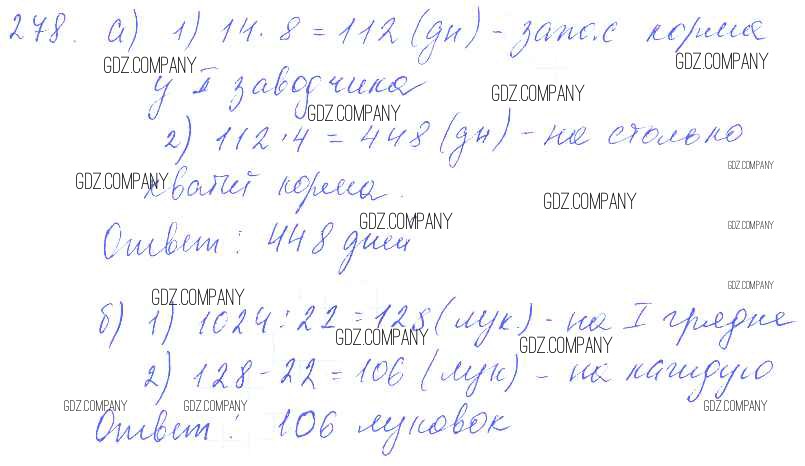 278. а) 1) 14·8 = 112 (дн) - запас корма
GDZ.COMPANY GDZ.COMPANY
у I заводчика
GDZ.COMPANY GDZ.COMPANY
2) 112·4 = 448 (дн) - на столько
GDZ.COMPANY
GDZ.COMPANY хватит корма.
GDZ.COMPANY
GDZ.COMPANY GDZ.COMPANY
Ответ: 448 дней
GDZ.COMPANY
GDZ.COMPANY
б) 1) 1024:22=128 (лук.) - на I грядке
GDZ.COMPANY GDZ.COMPANY
2) 128-22=106 (лук) - на каждую
GDZ.COMPANY GDZ.COMPANY GDZ.COMPANY
Ответ: 106 луковок